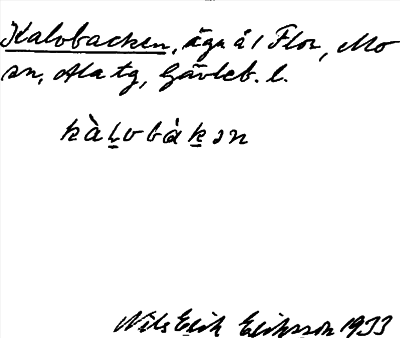 Kalvbacken, ägn å 1 Flor, Mo
sn, Ala tg, Gävleb. l.
kàl̲vbàk̲ən
Nils Erik Eriksson 1933